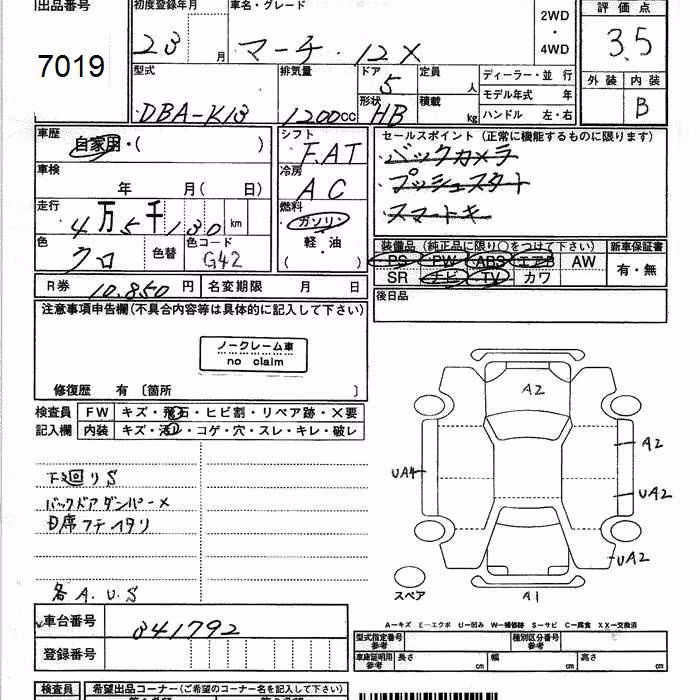 出品番号
7019
初度登録年月
23 月
車名・グレード
マーチ・12X
2WD
・
4WD
評価点
3.5
外装 内装
B
型式
DBA-K13
排気量
1200cc
ドア
5
形状
HB
定員
人
積載
kg
ディーラー・並行
モデル年式 年
ハンドル 左・右
車歴
自家用・( )
車検
年 月( 日)
走行
4万5千130km
色
クロ
色替
色コード
G42
シフト
FAT
冷房
AC
燃料
ガソリン
・
軽・油
( )
セールスポイント (正常に機能するものに限ります)
バックカメラ
プッシュスタート
スマートキー
装備品 (純正品に限り○をつけて下さい)
PS PW ABS エアB AW
SR ナビ TV カワ
新車保証書
有・無
R券 10.850円
名変期限 月 日
後日品
注意事項申告欄(不具合内容等は具体的に記入して下さい)
ノークレーム車
no claim
修復歴 有 〔箇所 〕
検査員
記入欄
FW キズ・飛石・ヒビ割・リペア跡・×要
内装 キズ・汚レ・コゲ・穴・スレ・キレ・破レ
下廻りS
バックドアダンパー×
各A.U.S
A2
A2
UA4
UA2
UA2
A1
スペア
A-キズ E-エクボ U-凹み W-補修跡 S-サビ C-腐食 XX-交換済
車台番号
041792
登録番号
型式指定番号
参考
種別区分番号
参考
車庫証明用
参考
長さ cm
幅 cm
高さ cm
検査員
希望出品コーナー(ご希望のコーナー名を記入下さい)